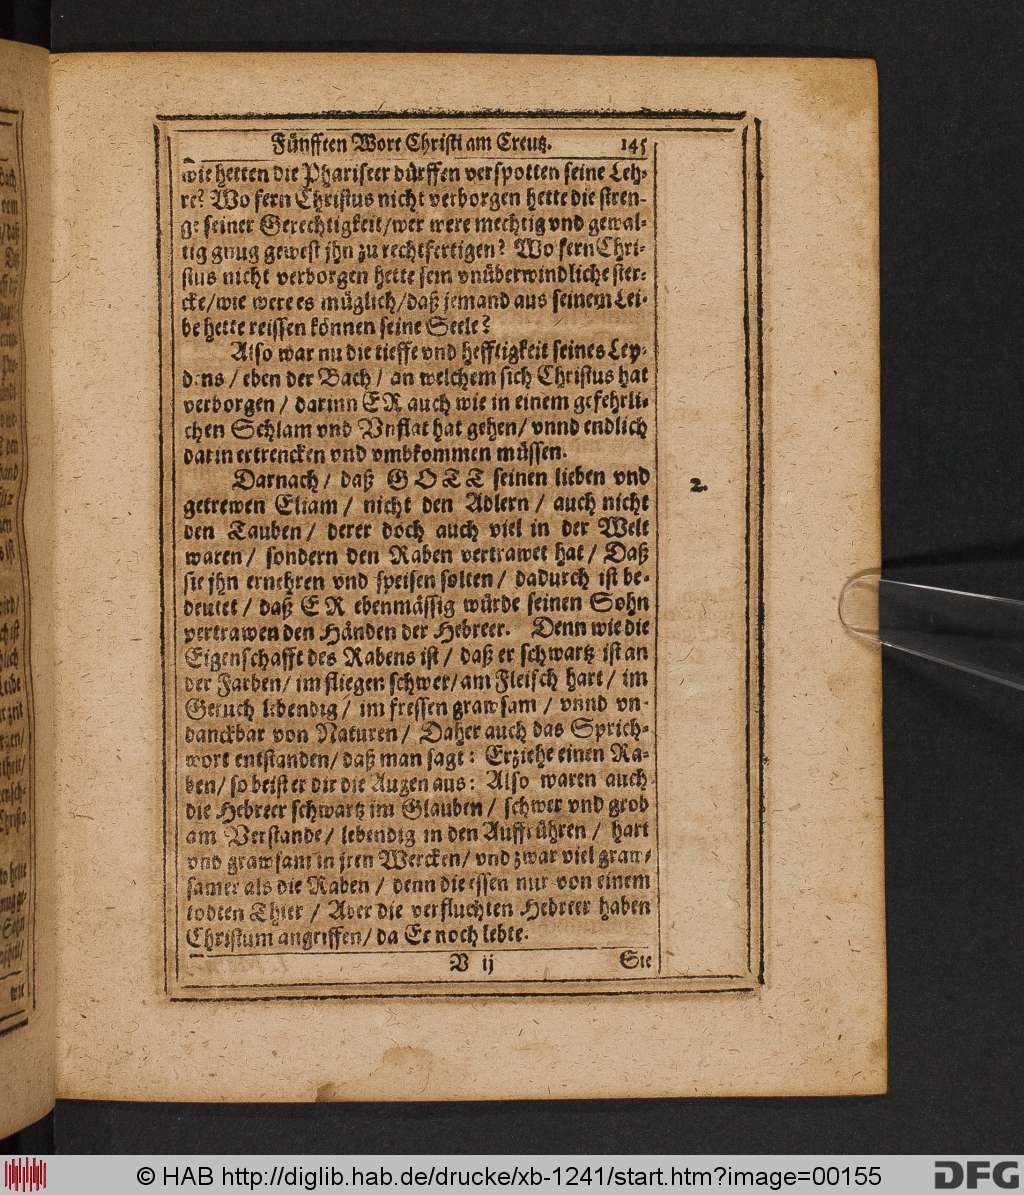 Fünfften Wort Christi am Creutz. 145
wie hetten die Phariseer dürffen verspotten seine Leh-
re? Wo fern Christus nicht verborgen hette die stren-
ge seiner Gerechtigkeit/ wer were mechtig vnd gewal-
tig gnug gewest jhn zu rechtfertigen? Wo fern Chri-
stus nicht verborgen hette sein vnüberwindliche ster-
cke/ wie were es müglich/ daß jemand aus seinem Lei-
be hette reissen können seine Seele?
Also war nu die tieffe vnd hefftigkeit seines Ley-
dens / eben der Bach / an welchem sich Christus hat
verborgen / darinn ER auch wie in einem gefehrli-
chen Schlam vnd Vnflat hat gehen/ vnnd endlich
darin ertrencken vnd vmbkommen müssen.
Darnach / daß GOTT seinen lieben vnd
getrewen Eliam / nicht den Adlern / auch nicht
den Tauben / derer doch auch viel in der Welt
waren / sondern den Raben vertrawet hat / Daß
sie jhn ernehren vnd speisen solten / dadurch ist be-
deutet / daß ER ebenmässig würde seinen Sohn
vertrawen den Händen der Hebreer. Denn wie die
Eigenschafft des Rabens ist / daß er schwartz ist an
der Farben / im fliegen schwer/ am Fleisch hart / im
Geruch lebendig / im fressen grawsam / vnnd vn-
danckbar von Naturen / Daher auch das Sprich-
wort entstanden/ daß man sagt: Erziehe einen Ra-
ben/ so beist er dir die Augen aus: Also waren auch
die Hebreer schwartz im Glauben / schwer vnd grob
am Verstande/ lebendig in den Auffrühren / hart
vnd grawsam in jren Wercken/ vnd zwar viel graw-
samer als die Raben / denn die essen nur von einem
todten Thier / Aber die verfluchten Hebreer haben
Christum angriffen/ da Er noch lebte.
V ij Sie
2.
© HAB http://diglib.hab.de/drucke/xb-1241/start.htm?image=00155
DFG